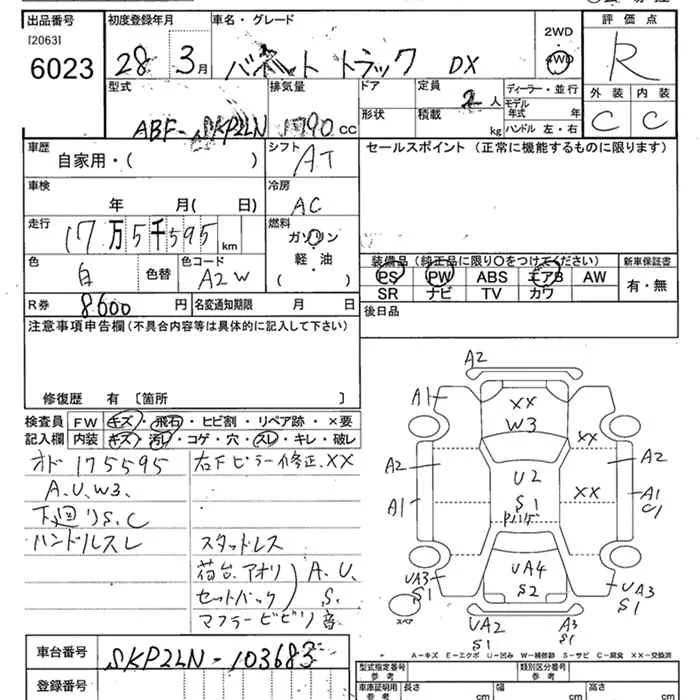 出品番号
[2063]
6023
初度登録年月
28 3月
車名・グレード
バネット トラック DX
2WD
4WD
評価点
R
外装 内装
C C
型式
ABF-SKP2LN
排気量
1790 cc
ドア
形状
定員
2人
積載
kg
ディーラー・並行
モデル年式 年
ハンドル 左・右
車歴
自家用・( )
シフト
AT
セールスポイント (正常に機能するものに限ります)
車検
年 月( 日)
冷房
AC
走行
17万5千595 km
燃料
ガソリン
(軽・油)
色
白
色替
色コード
A2W
装備品(純正品に限り〇をつけてください)
PS PW ABS エアB AW
SR ナビ TV カワ
新車保証書
有・無
R券 8600 円
名変通知期限 月 日
後日品
注意事項申告欄(不具合内容等は具体的に記入して下さい)
修復歴 有 [箇所 ]
検査員記入欄
FW キズ・飛石・ヒビ割・リペア跡・×要
内装 キズ・汚レ・コゲ・穴・スレ・キレ・破レ
オド 175595
A.U.W3.
下廻りS.C
ハンドルスレ
右Fピラー修正.XX
スタッドレス
荷台.アオリ
セットバック
A.U.
S.
マフラービビリ音
A2
A1
XX
W3
XX
A2
A2
U2
S1
XX
A1
C1
A1
UA3
S1
UA4
S2
UA3
S1
スペア
UA2
S1
A3
S1
A-キズ E-エクボ U-凹み W-補修跡 S-サビ C-腐食 XX-交換済
車台番号
SKP2LN-103683
登録番号
型式指定番号
参考
類別区分番号
参考
車庫証明用
参考
長さ cm
幅 cm
高さ cm